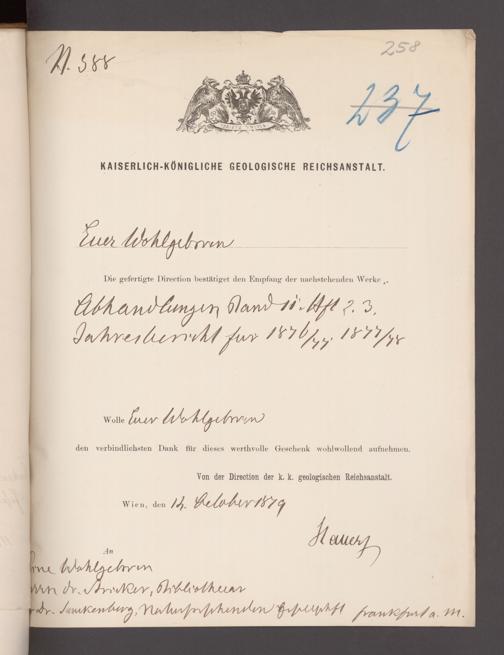 N. 388
258
237
KAISERLICH-KÖNIGLICHE GEOLOGISCHE REICHSANSTALT.
Euer Wohlgeboren
Die gefertigte Direction bestätiget den Empfang der nachstehenden Werke
Abhandlungen Band 11. Hft 2. 3.
Jahresbericht für 1876/77. 1877/78
Wolle Euer Wohlgeboren
den verbindlichsten Dank für dieses werthvolle Geschenk wohlwollend aufnehmen.
Von der Direction der k. k. geologischen Reichsanstalt.
Wien, den 14. October 1879
Hauer
An
Wohlgeboren
Dr. Bibliothecar
Senkenberg. Naturforschenden Gesellschft Frankfurt a. M.